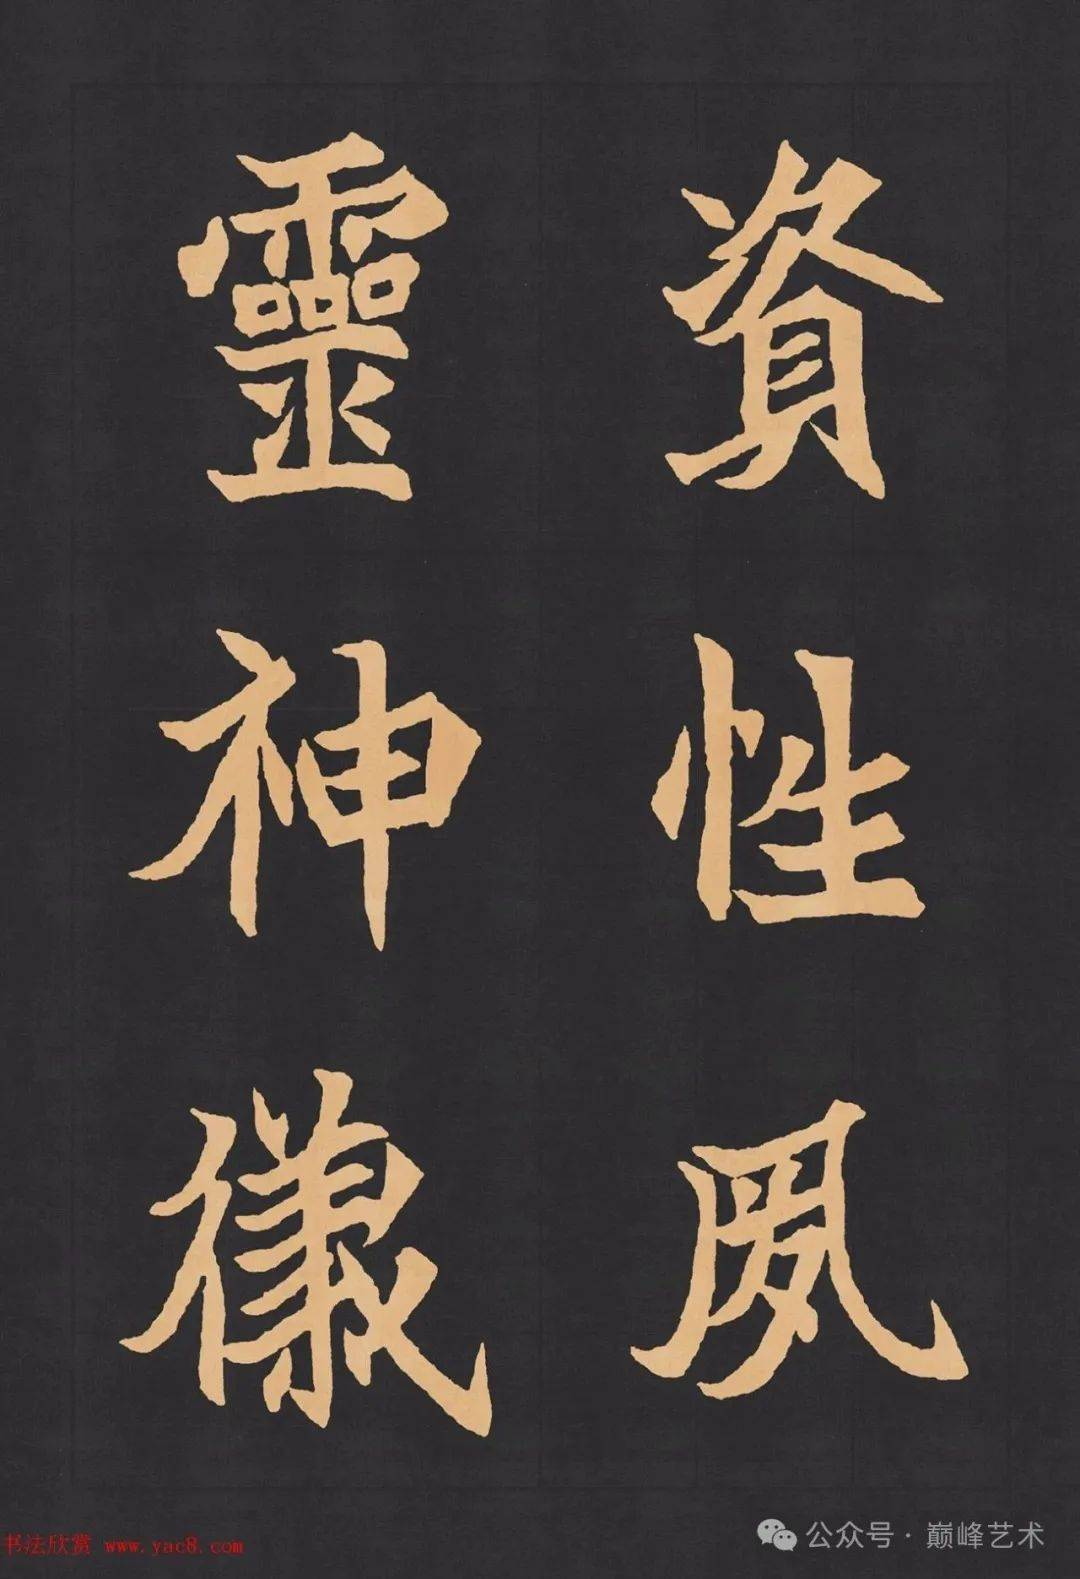 資性夙
靈神儀
书法欣赏 www.yac8.com
公众号·巅峰艺术